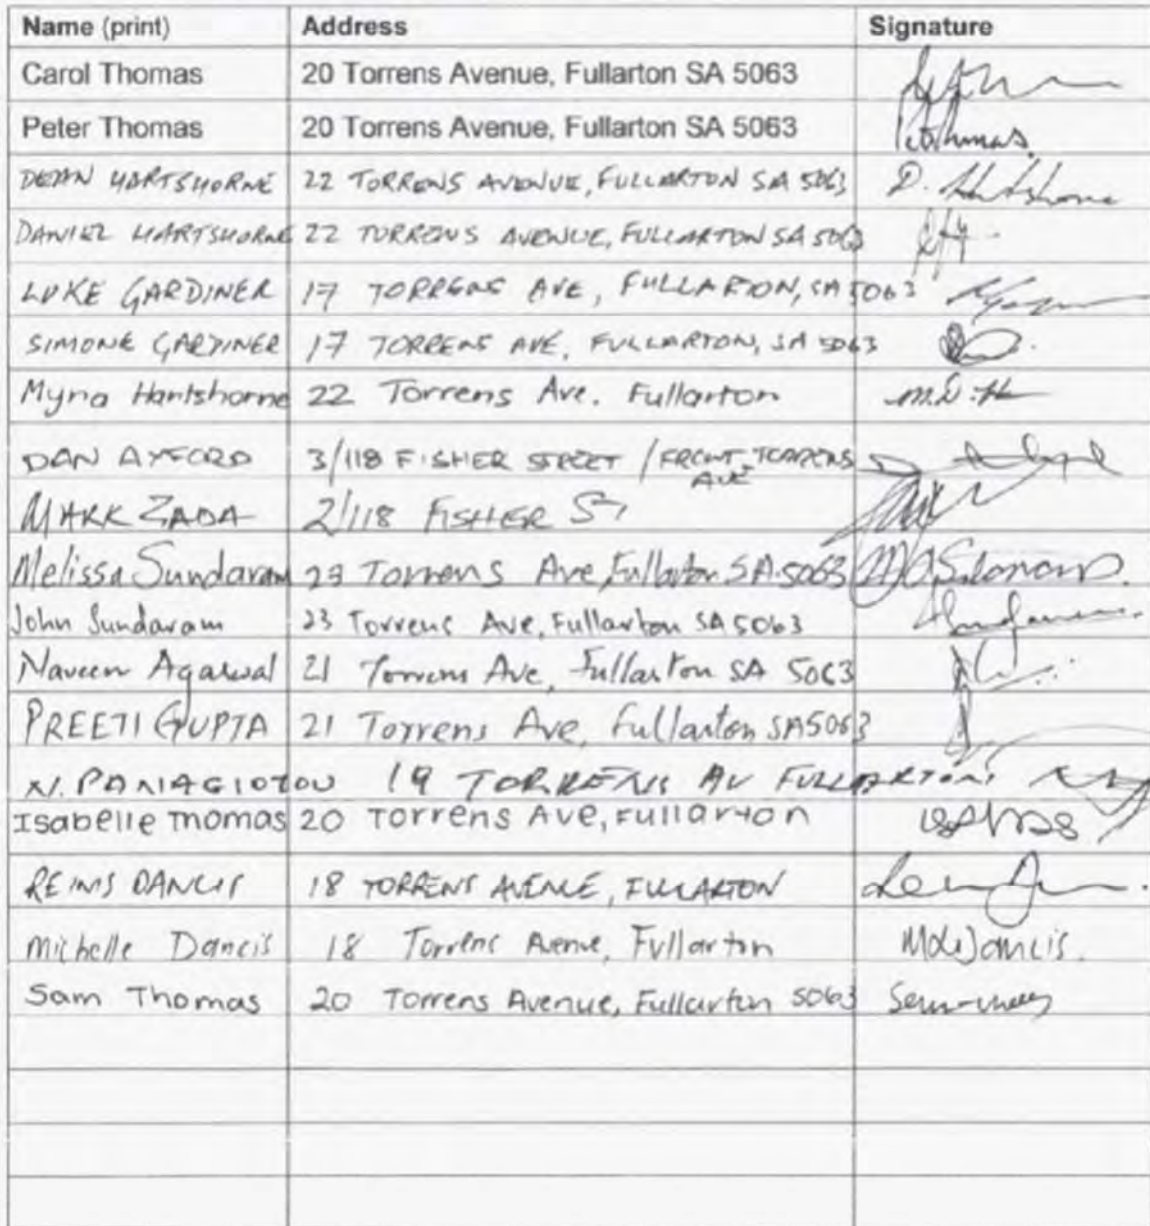 Name (print) Address Signature
Carol Thomas 20 Torrens Avenue, Fullarton SA 5063
Peter Thomas 20 Torrens Avenue, Fullarton SA 5063
DEAN HARTSHORNE 22 TORRENS AVENUE, FULLARTON SA 5063 D. Hartshorne
DANIEL HARTSHORNE 22 TORRENS AVENUE, FULLARTON SA 5063
LUKE GARDINER 17 TORRENS AVE, FULLARTON, SA 5063
SIMONE GARDINER 17 TORRENS AVE, FULLARTON, SA 5063
Myrna Hartshorne 22 Torrens Ave. Fullarton M.D. H
DAN AXFORD 3/118 FISHER STREET / FRONT TORRENS
AVE
MARK ZADA 2/118 FISHER ST
Melissa Sundaram 23 Torrens Ave, Fullarton SA 5063
John Sundaram 23 Torrens Ave, Fullarton SA 5063
Naveen Agarwal 21 Torrens Ave, Fullarton SA 5063
PREETI GUPTA 21 Torrens Ave, Fullarton SA 5063
N. PANAGIOTOU 19 TORRENS AV FULLARTON
Isabelle Thomas 20 Torrens Ave, Fullarton
REINIS DANCIS 18 TORRENS AVENUE, FULLARTON
Michelle Dancis 18 Torrens Avenue, Fullarton
Sam Thomas 20 Torrens Avenue, Fullarton 5063